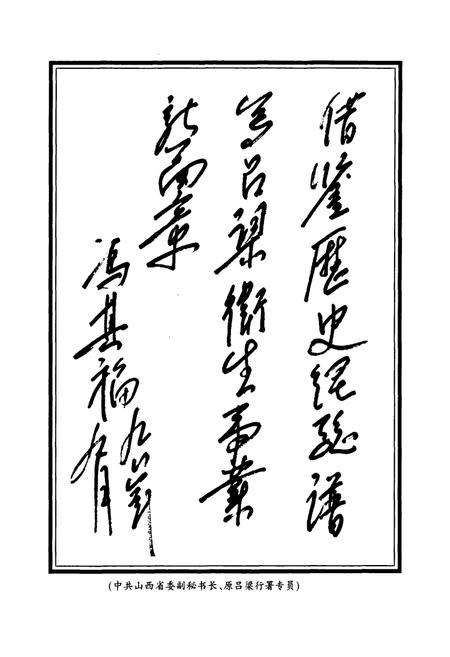 借鉴歷史经验谱
写吕梁衛生事業
新篇章
冯其福 九八年
九月
(中共山西省委副秘书长、原吕梁行署专员)